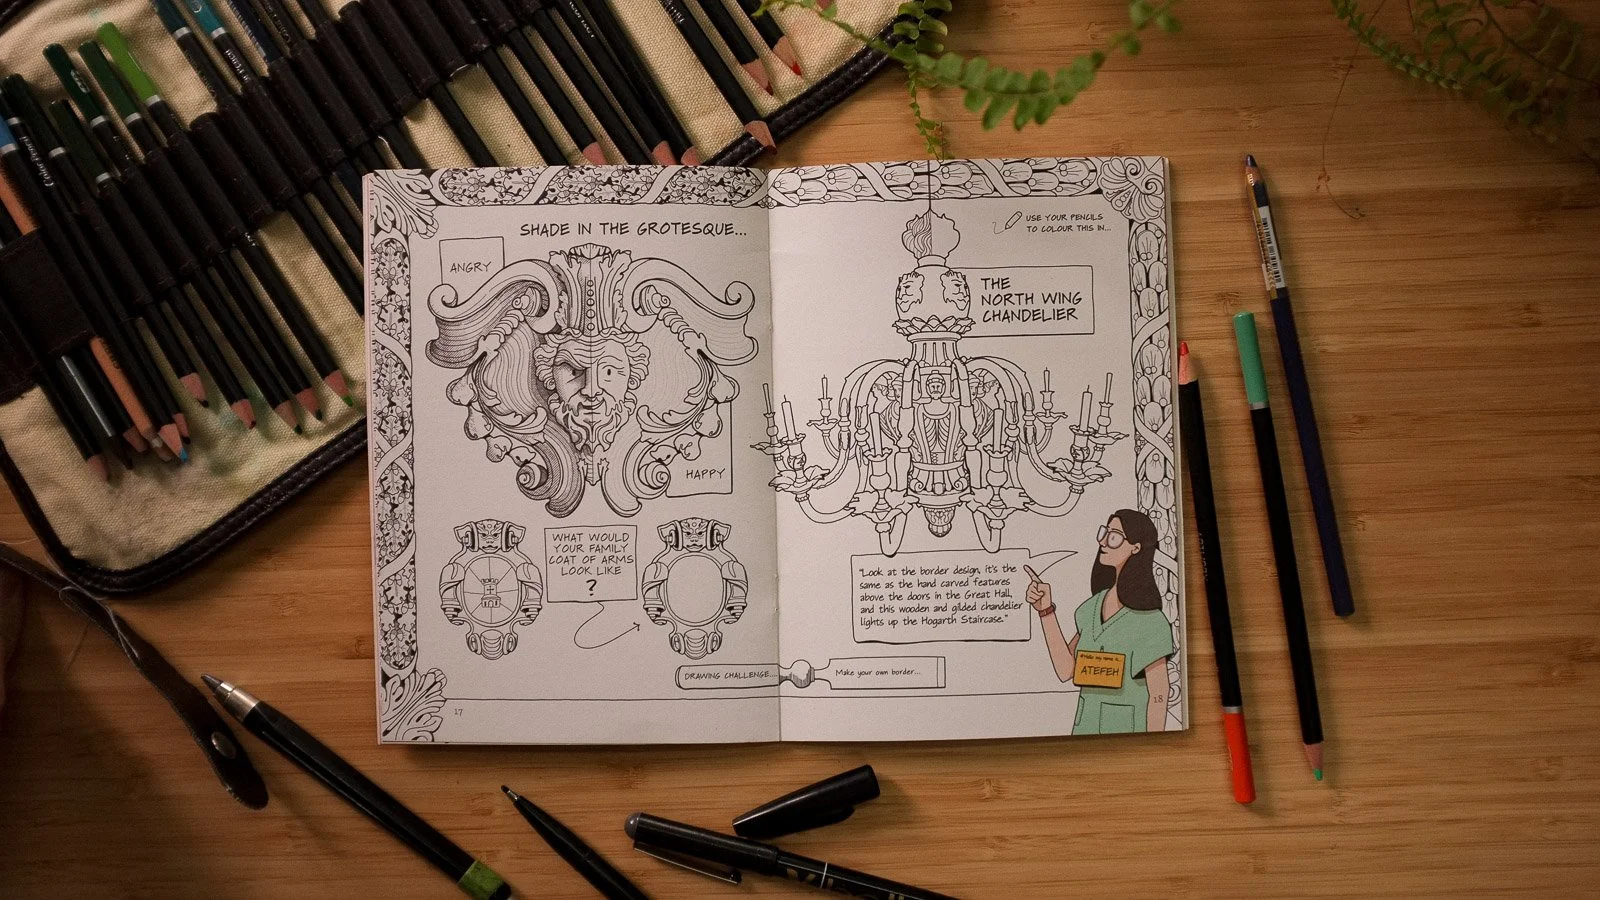 SHADE IN THE GROTESQUE...
ANGRY
HAPPY
WHAT WOULD
YOUR FAMILY
COAT OF ARMS
LOOK LIKE
?
DRAWING CHALLENGE...
17
USE YOUR PENCILS
TO COLOUR THIS IN...
THE
NORTH WING
CHANDELIER
"Look at the border design, it's the
same as the hand carved features
above the doors in the Great Hall,
and this wooden and gilded chandelier
lights up the Hogarth Staircase."
#Hello my name is...
ATEFEH
Make your own border...
18